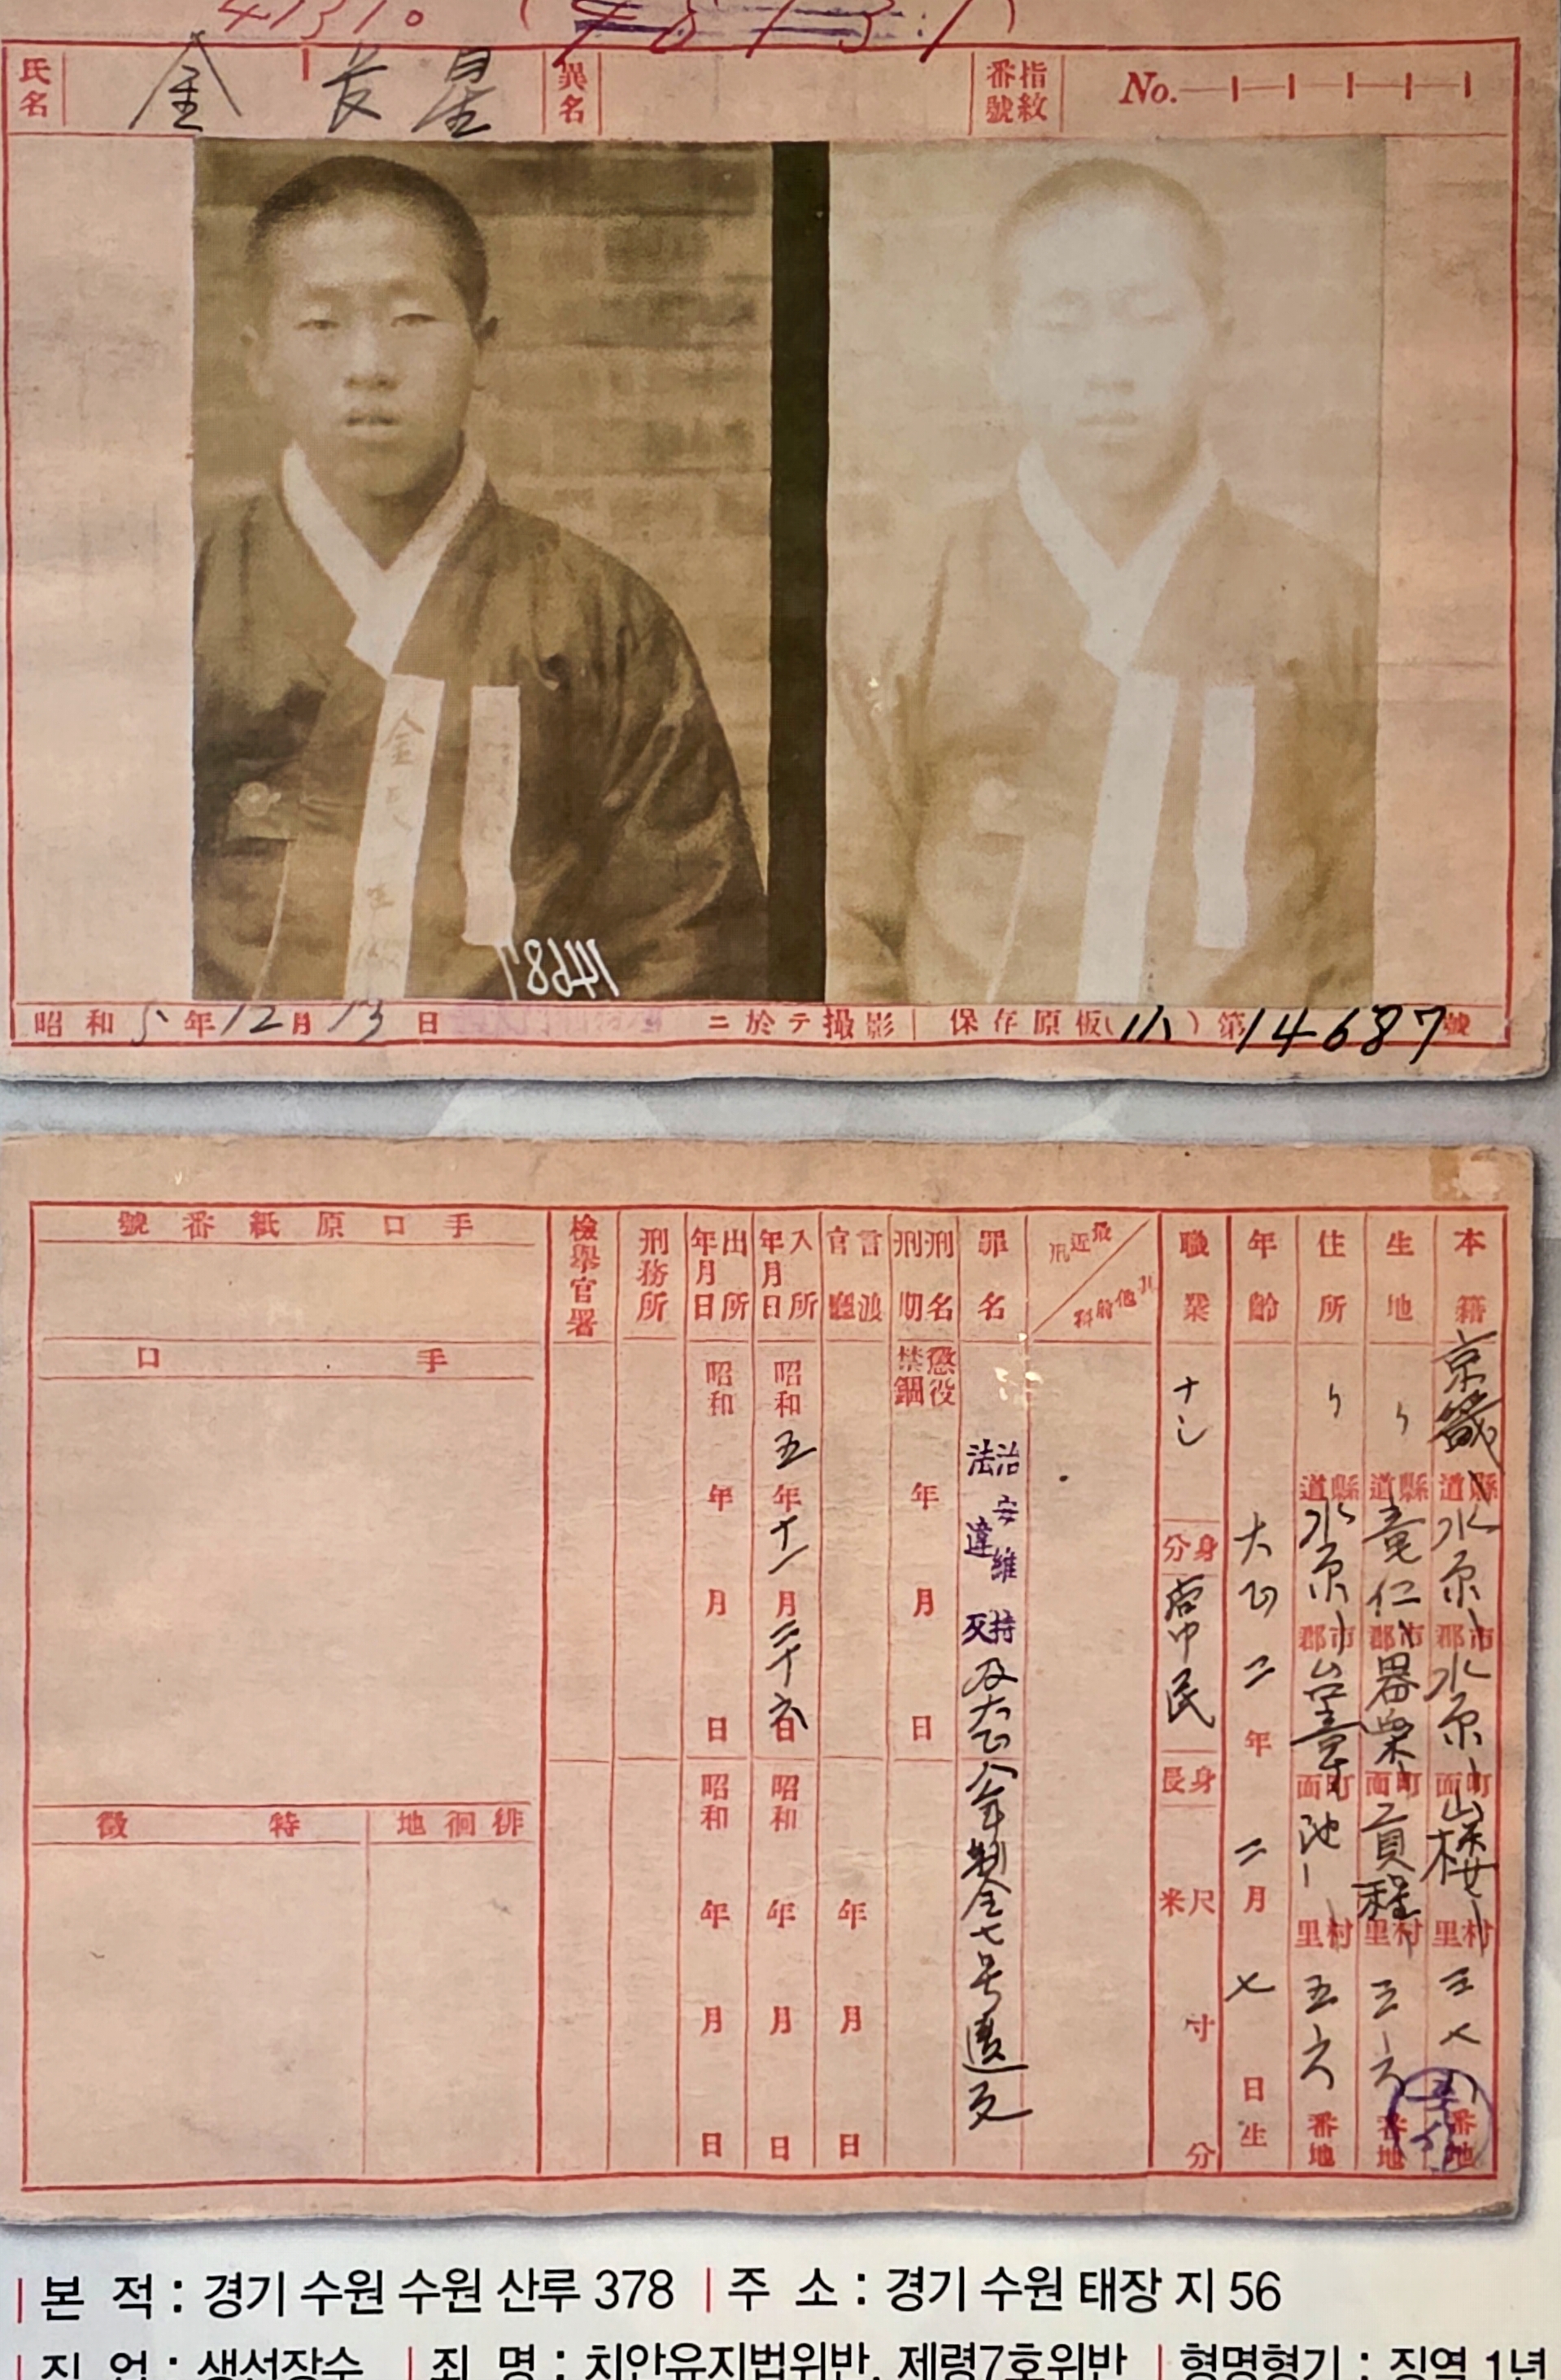 氏名 金長星 異名 指紋番號 No.
金長星
14687
昭和5年12月13日 ニ於テ撮影 保存原板(小)第14687號
本籍 京畿道縣水原郡市水原面町山樓里村三七八番地
生地 〃道縣龍仁郡市器興面町貢程里村三六番地
住所 〃道縣水原郡市台章面町池里村五六番地
年齡 大正二年二月七日生
職業 ナシ
身分 常民
身長 尺米 寸 分
最近刑 其他前科
罪名 治安維持法違反及大正八年制令七号違反
刑名刑期 懲役禁錮 年 月 日
言渡官廳 年 月 日
入所年月日 昭和五年十一月二十六日 昭和 年 月 日
出所年月日 昭和 年 月 日 昭和 年 月 日
刑務所
檢擧官署
手口原紙番號
手口
徘徊地
特徵
본 적 : 경기 수원 수원 산루 378 | 주 소 : 경기 수원 태장 지 56
직 업 : 생선장수 | 죄 명 : 치안유지법위반, 제령7호위반 | 형명형기 : 징역 1년